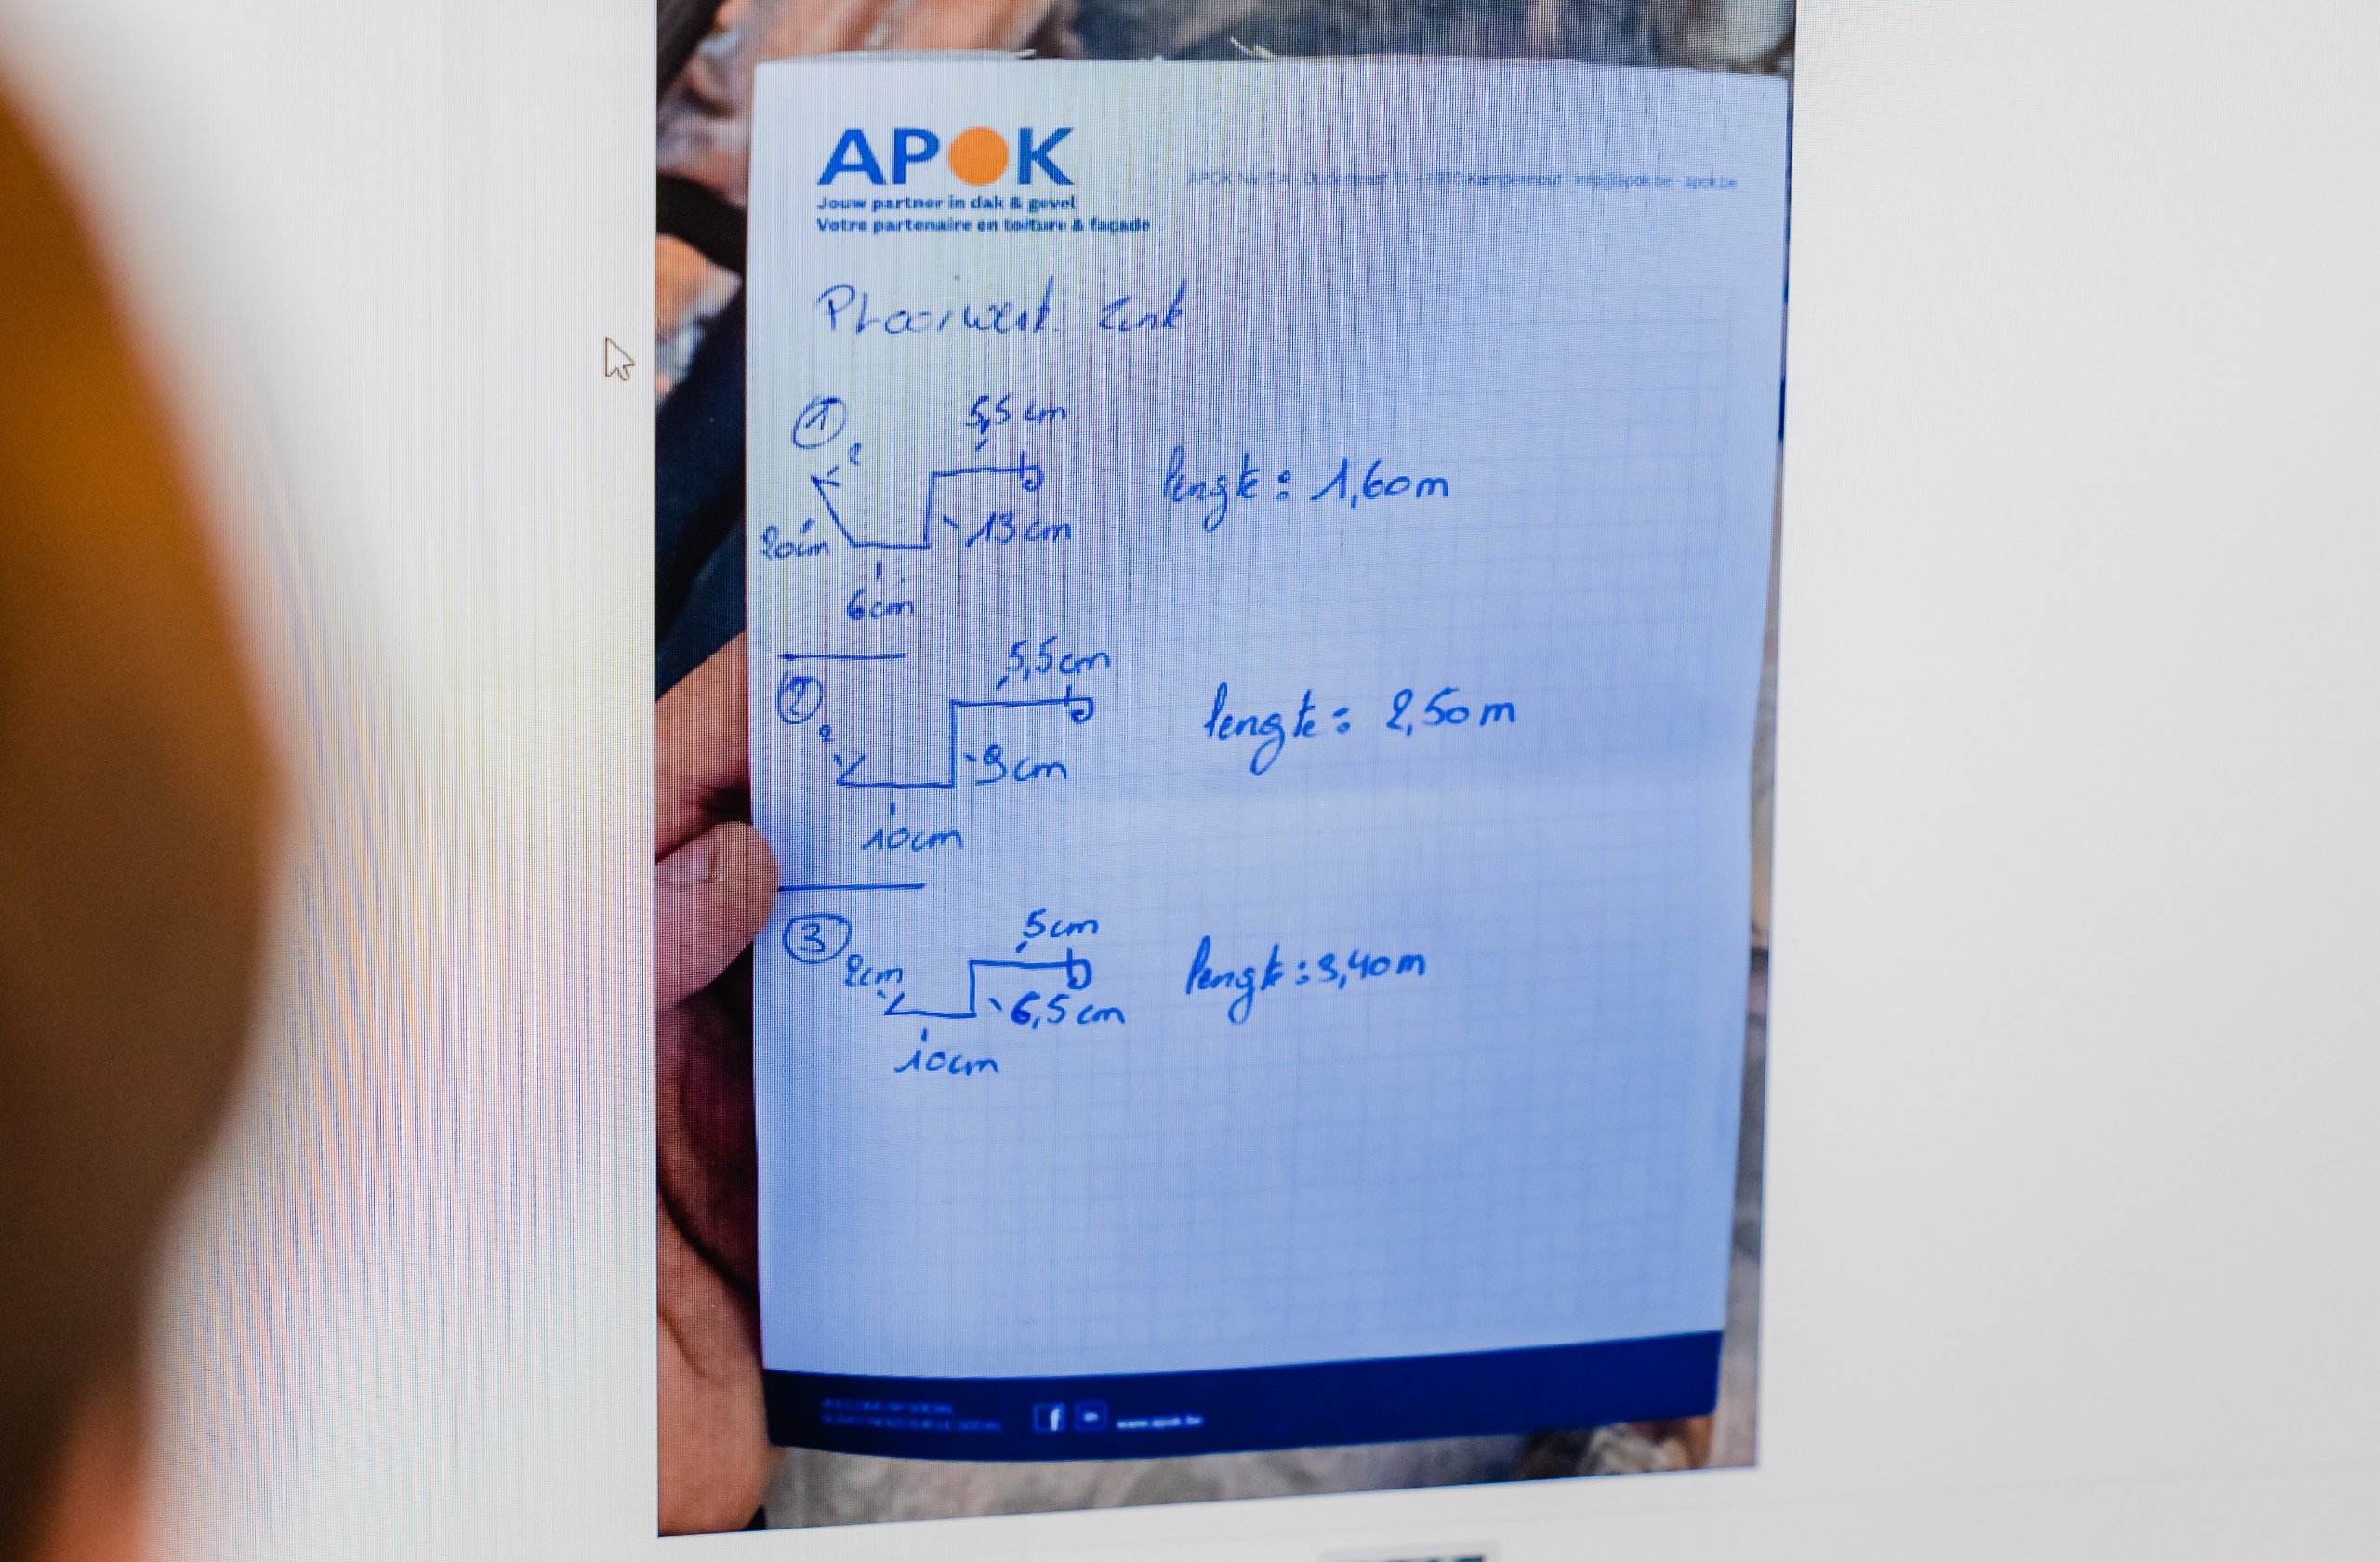 APOK
Jouw partner in dak & gevel
Votre partenaire en toiture & façade
APOK NV/SA - 1910 Kampenhout - info@apok.be - apok.be
Plooiwerk Zink
1
5,5 cm
2
lengte: 1,60m
20cm
13cm
6cm
2
5,5cm
2
lengte: 2,50m
9cm
10cm
3
5cm
2cm
lengte: 3,40m
6,5cm
10cm
f
www.apok.be